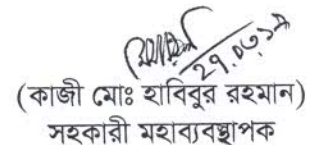 ২৭.০৩.১৯
(কাজী মোঃ হাবিবুর রহমান)
সহকারী মহাব্যবস্থাপক